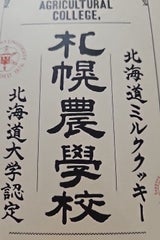 AGRICULTURAL
COLLEGE,
北海道ミルククッキー
札幌農學校
北海道大学認定